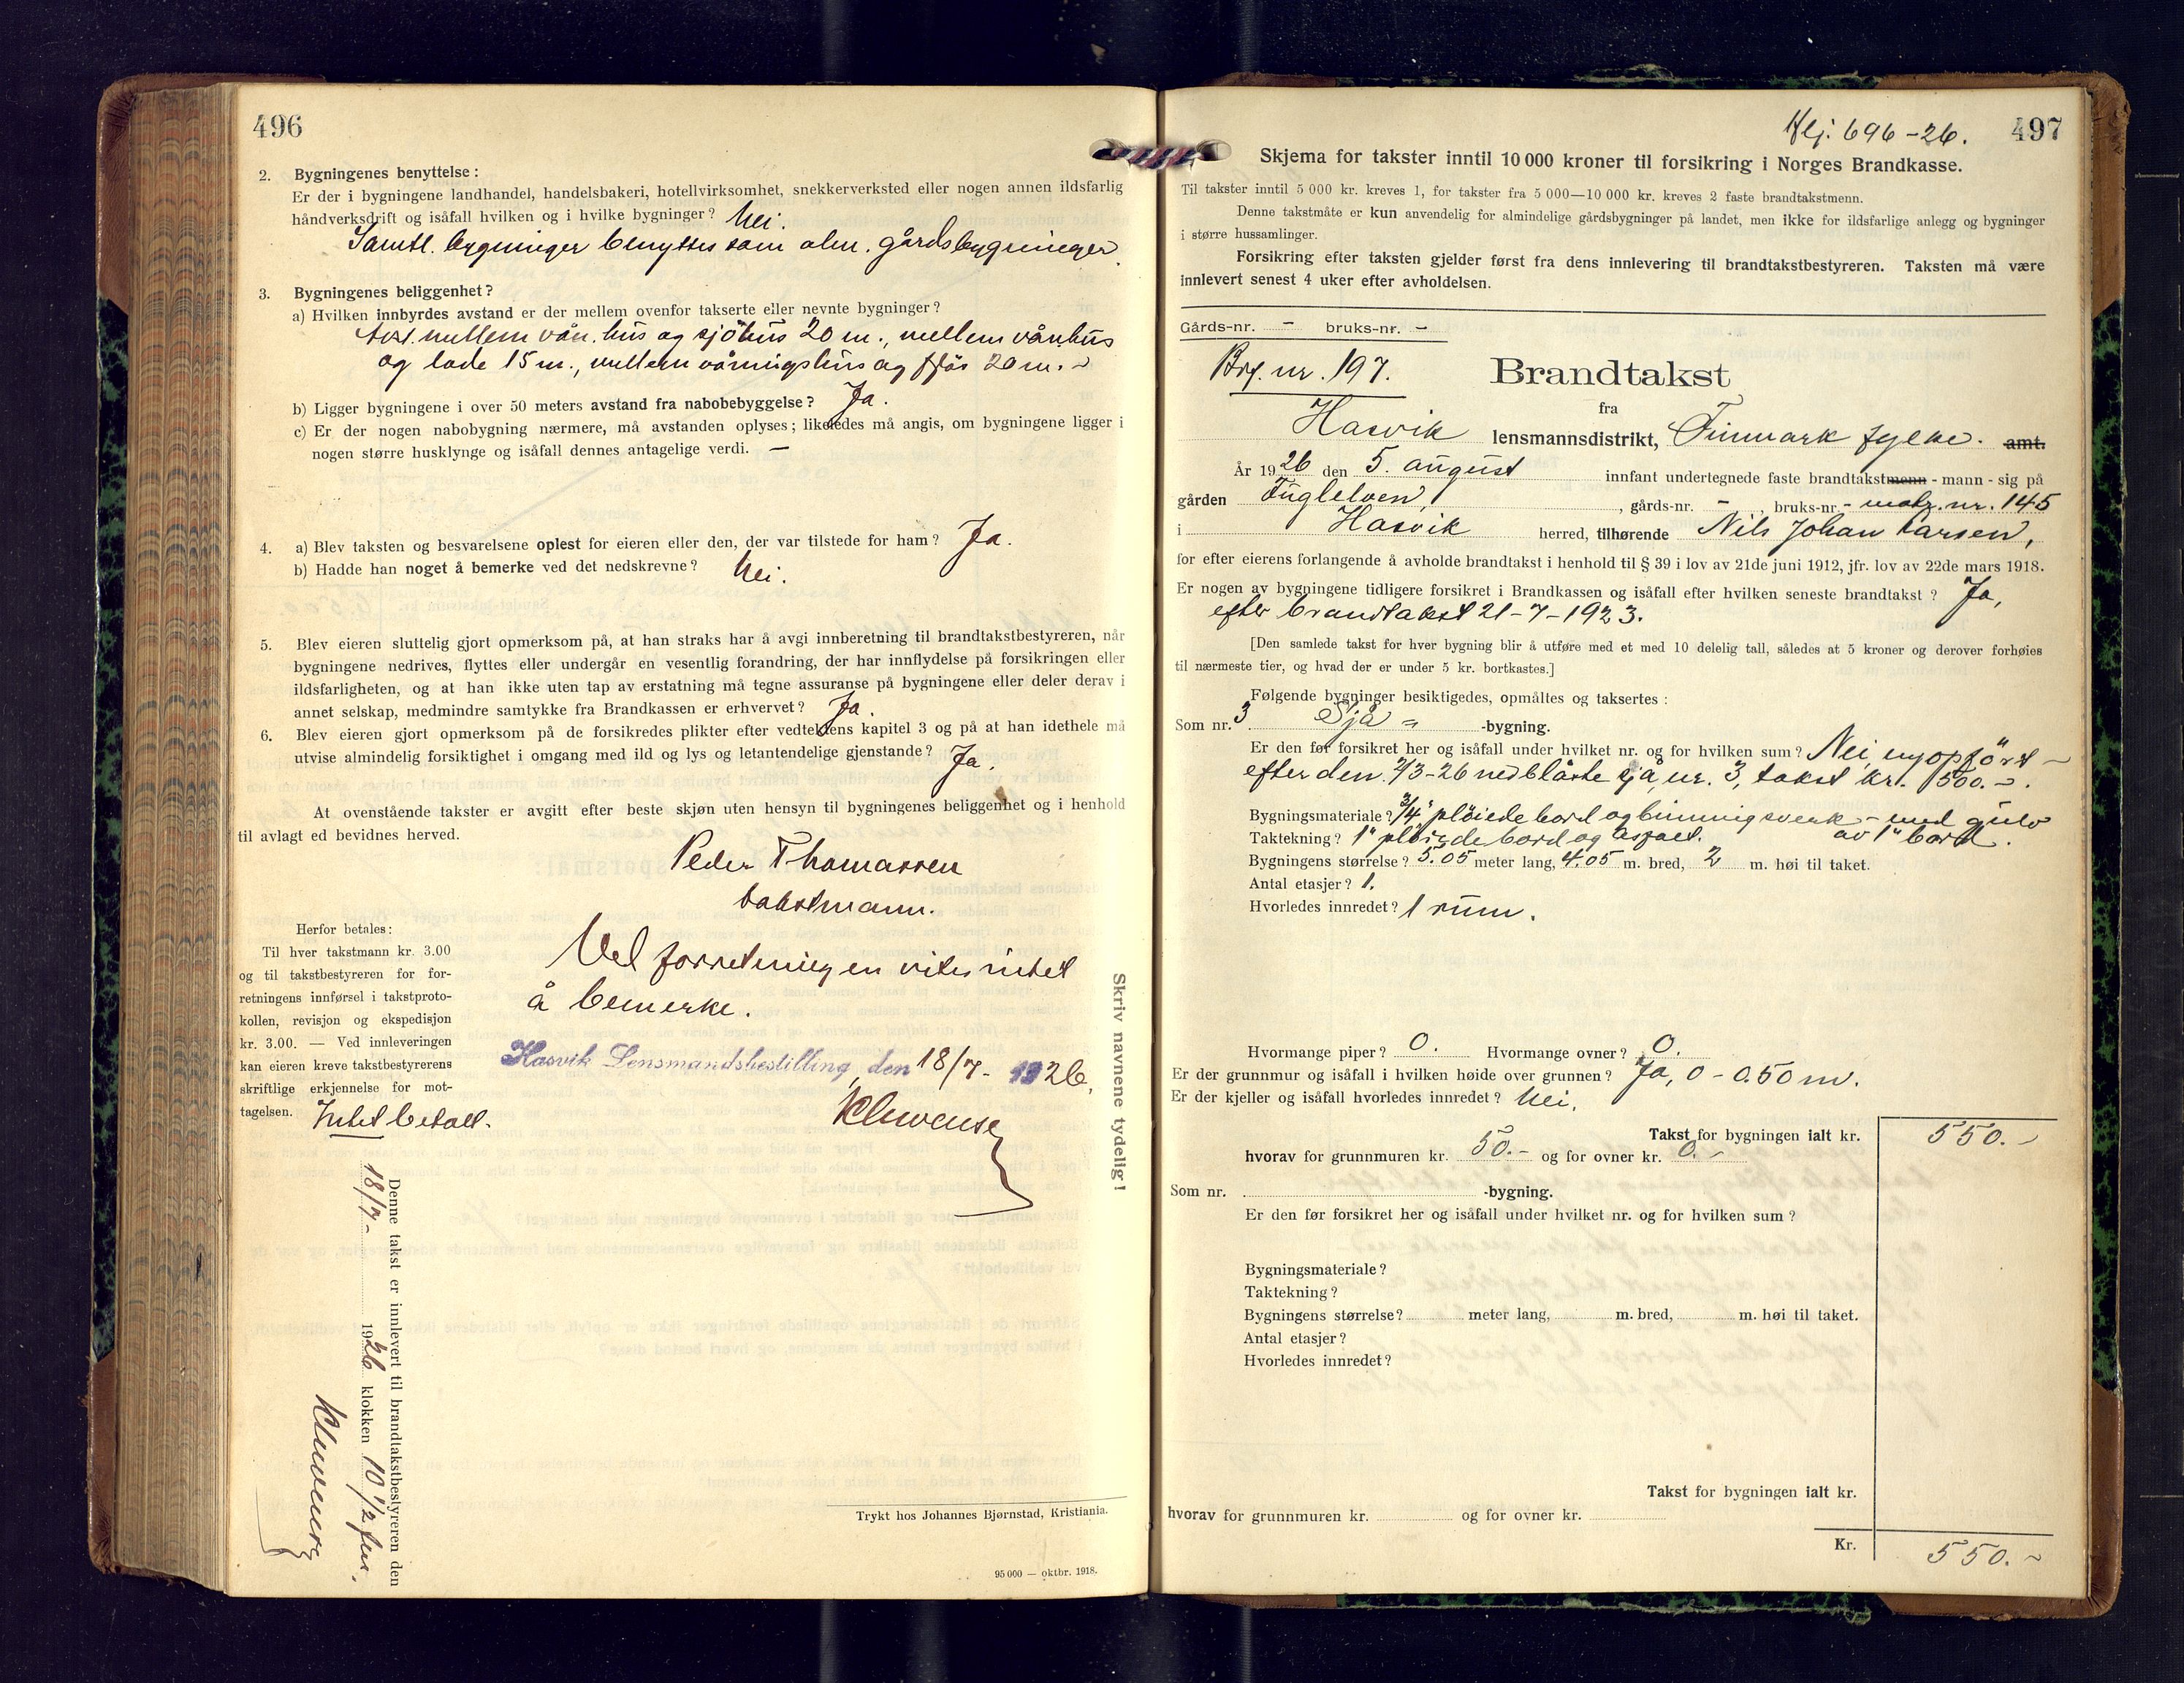 496
2. Bygningenes benyttelse:
Er der i bygningene landhandel, handelsbakeri, hotellvirksomhet, snekkerverksted eller nogen annen ildsfarlig
håndverksdrift og isåfall hvilken og i hvilke bygninger? Nei.
Samtl. bygninger benyttes som alm. gårdsbygninger.
3. Bygningenes beliggenhet?
a) Hvilken innbyrdes avstand er der mellem ovenfor takserte eller nevnte bygninger?
Avst. mellem vån. hus og sjöhus 20 m., mellem vån.hus
og lade 15 m., mellem våningshus og fjös 20 m. -
b) Ligger bygningene i over 50 meters avstand fra nabobebyggelse? Ja.
c) Er der nogen nabobygning nærmere, må avstanden oplyses; likeledes må angis, om bygningene ligger i
nogen større husklynge og isåfall dennes antagelige verdi. —
4. a) Blev taksten og besvarelsene oplest for eieren eller den, der var tilstede for ham? Ja.
b) Hadde han noget å bemerke ved det nedskrevne? Nei.
5. Blev eieren sluttelig gjort opmerksom på, at han straks har å avgi innberetning til brandtakstbestyreren, når
bygningene nedrives, flyttes eller undergår en vesentlig forandring, der har innflydelse på forsikringen eller
ildsfarligheten, og at han ikke uten tap av erstatning må tegne assuranse på bygningene eller deler derav i
annet selskap, medmindre samtykke fra Brandkassen er erhvervet? Ja.
6. Blev eieren gjort opmerksom på de forsikredes plikter efter vedtektens kapitel 3 og på at han idethele må
utvise almindelig forsiktighet i omgang med ild og lys og letantendelige gjenstande? Ja.
At ovenstående takster er avgitt efter beste skjøn uten hensyn til bygningenes beliggenhet og i henhold
til avlagt ed bevidnes herved.
Peder Thomassen
takstmann.
Herfor betales:
Til hver takstmann kr. 3.00
og til takstbestyreren for for-
retningens innførsel i takstproto-
kollen, revisjon og ekspedisjon
kr. 3.00. — Ved innleveringen
kan eieren kreve takstbestyrerens
skriftlige erkjennelse for mot-
tagelsen. Intet betalt.
Ved forretningen vites intet
å bemerke.
Hasvik Lensmandsbestilling, den 18/7 - 1926.
Skriv navnene tydelig!
Denne takst er innlevert til brandtakstbestyreren den
18/7 - 1926 klokken 10 1/2 fm.
Trykt hos Johannes Bjørnstad, Kristiania.
95 000 — oktbr. 1918.
Hlj. 696-26. 497
Skjema for takster inntil 10 000 kroner til forsikring i Norges Brandkasse.
Til takster inntil 5 000 kr. kreves 1, for takster fra 5 000—10 000 kr. kreves 2 faste brandtakstmenn.
Denne takstmåte er kun anvendelig for almindelige gårdsbygninger på landet, men ikke for ildsfarlige anlegg og bygninger
i større hussamlinger.
Forsikring efter taksten gjelder først fra dens innlevering til brandtakstbestyreren. Taksten må være
innlevert senest 4 uker efter avholdelsen.
Gårds-nr. - bruks-nr. -
Brf. nr. 197.
Brandtakst
fra
Hasvik lensmannsdistrikt, Finmark fylke. amt.
År 1926 den 5. august innfant undertegnede faste brandtakstmenn - mann - sig på
gården Fuglelven, gårds-nr. - , bruks-nr. - matr. nr. 145
i Hasvik herred, tilhørende Nils Johan Larsen,
for efter eierens forlangende å avholde brandtakst i henhold til § 39 i lov av 21de juni 1912, jfr. lov av 22de mars 1918.
Er nogen av bygningene tidligere forsikret i Brandkassen og isåfall efter hvilken seneste brandtakst? Ja,
efter brandtakst 21-7-1923.
[Den samlede takst for hver bygning blir å utføre med et med 10 delelig tall, således at 5 kroner og derover forhøies
til nærmeste tier, og hvad der er under 5 kr. bortkastes.]
Følgende bygninger besiktigedes, opmåltes og taksertes:
Som nr. 3 Sjå - -bygning.
Er den før forsikret her og isåfall under hvilket nr. og for hvilken sum? Nei, nyopfört -
efter den 2/3-26 nedblåste sjå, nr. 3, takst kr. 500.-.
Bygningsmateriale? 3/4" plöiede bord og binningsverk - med gulv
av 1" bord.
Taktekning? 1" plöiede bord og asfalt.
Bygningens størrelse? 5.05 meter lang, 4.05 m. bred, 2 m. høi til taket.
Antal etasjer? 1.
Hvorledes innredet? 1 rum.
Hvormange piper? 0. Hvormange ovner? 0.
Er der grunnmur og isåfall i hvilken høide over grunnen? Ja, 0 - 0.50 m.
Er der kjeller og isåfall hvorledes innredet? Nei.
Takst for bygningen ialt kr. 550.-
hvorav for grunnmuren kr. 50.- og for ovner kr. 0.-
Som nr. -bygning.
Er den før forsikret her og isåfall under hvilket nr. og for hvilken sum?
Bygningsmateriale?
Taktekning?
Bygningens størrelse? meter lang, m. bred, m. høi til taket.
Antal etasjer?
Hvorledes innredet?
Takst for bygningen ialt kr.
hvorav for grunnmuren kr. og for ovner kr.
Kr. 550.-